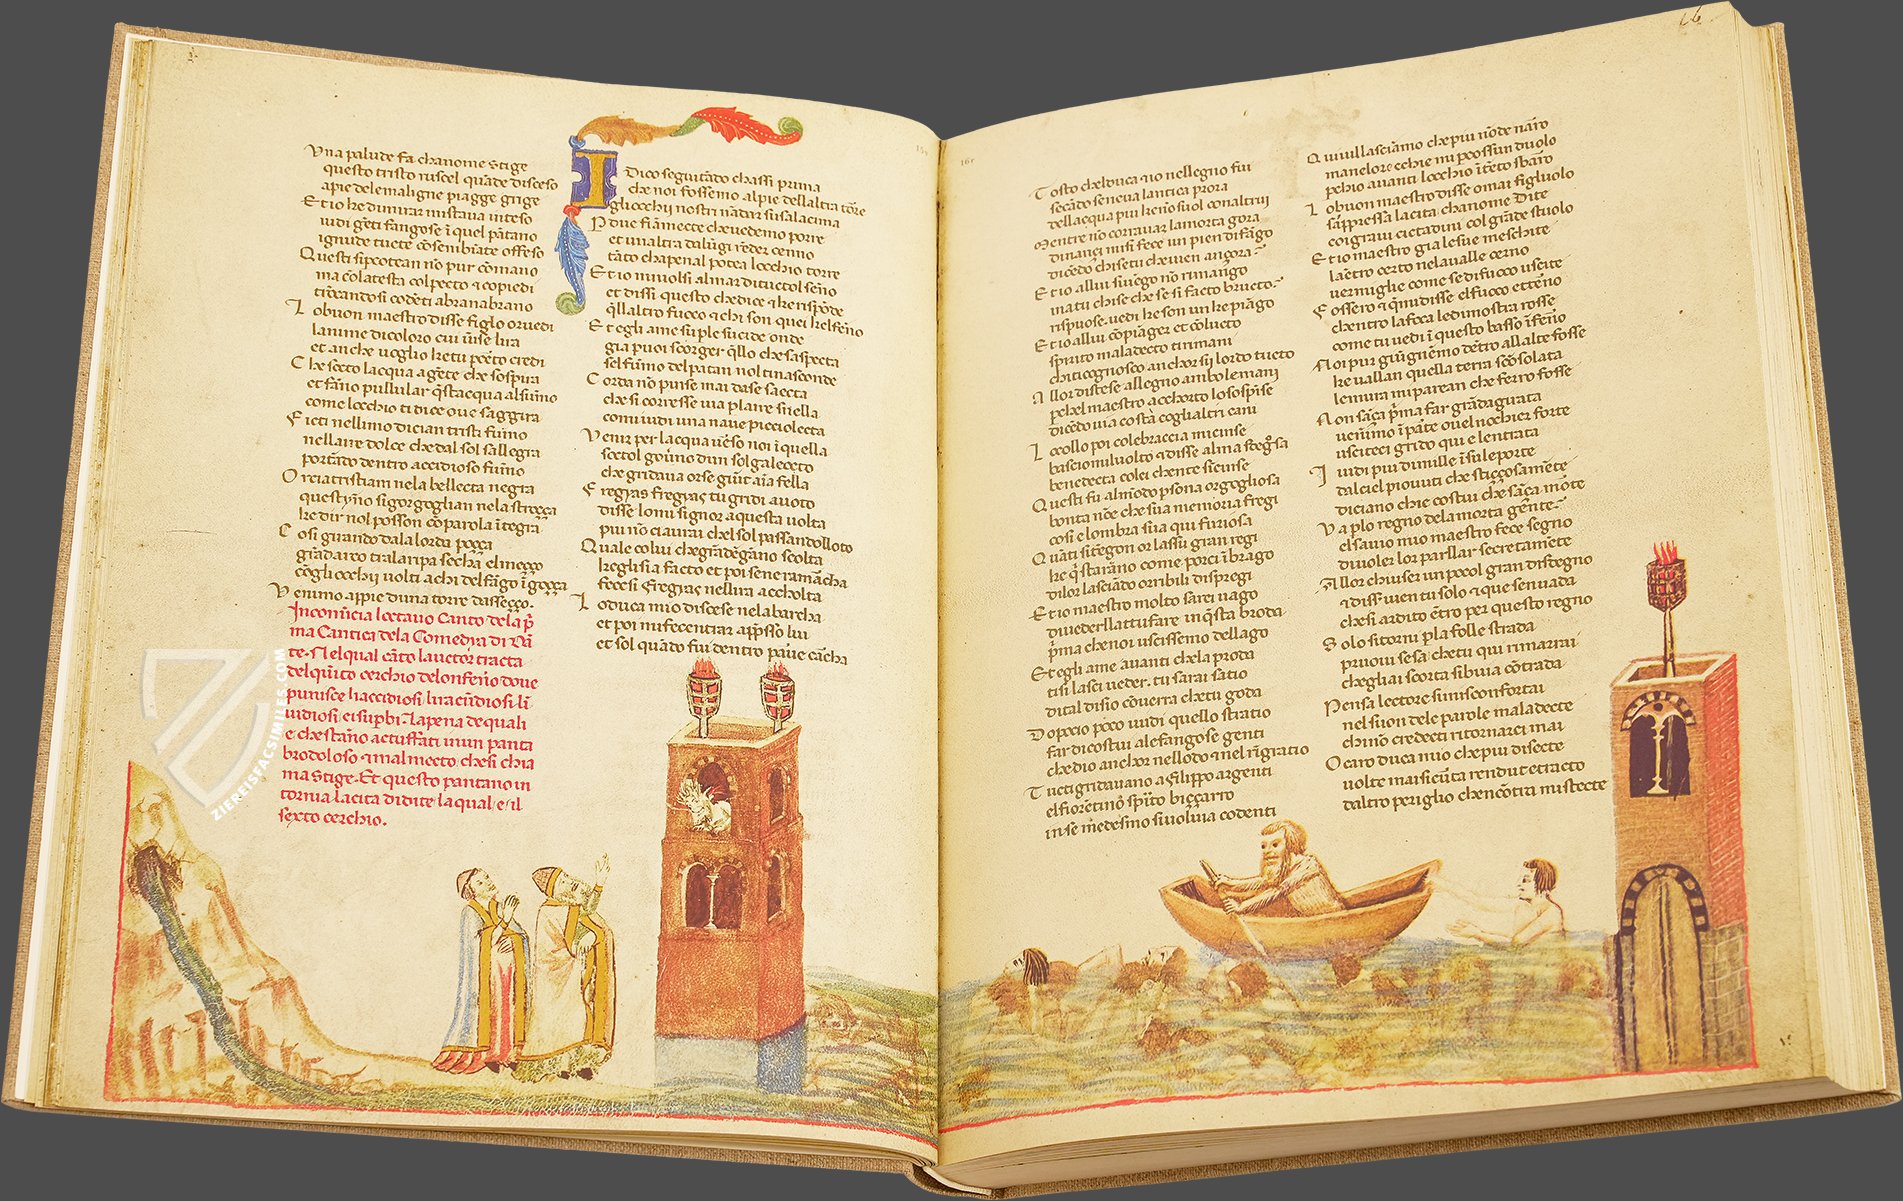 Una palude fa cha nome stige
questo tristo ruscel quãde disceso
apie dele maligne piagge grige
Et io ke dimirar mistava inteso
uidi gẽti fangose ĩ quel pãtano
ignude tucte cõ sembiãte offeso
Questi sipcotean nõ pur cõ mano
ma cõ la testa col pecto ⁊ co piedi
trõcandosi co dẽti abrano abrano
Lo buon maestro disse figlo or uedi
lanime di coloro cui uĩse lira
et anche uoglio ke tu p certo credi
Che socto lacqua a gẽte che sospira
et fãno pullular qstacqua alsũmo
come locchio ti dice oue saggira
Ficti nel limo dician tristi fũmo
nellaire dolce che dal sol sallegra
portãdo dentro accidioso fũmo
Or ci atristiam nela bellecta negra
questynõ si gorgoglian nela stroçça
ke dir nol posson cõ parola ĩtegra
Cosi girando dala lorda poçça
grãdarco tra la ripa secha elmeçço
cõ gli occhij uolti a chi del fãgo ĩgoçça
Venimo appie duna torre dasseçço.
Incomĩcia loctauo Canto dela p̃
ma Cantica dela Comedya di Dã
te. Nel qual cãto lauctor tracta
del quĩto cerchio delonferno doue
punisce li accidiosi lira cũdiosi lĩ
uidiosi ei supbi. La pena de quali
e che stãno actuffati in un panta
brodoloso ⁊ mal necto che si chia
ma Stige. Et questo pantano in
tornia la cita di dite la qual e il
sexto cerchio.
Io dico seguitãdo chassi prima
che noi fossemo al pie dellalta tõre
gliocchij nostri nãdar susalacima
P due fiãmecte che uedemo porre
et unaltra dalũgi rẽder cenno
tãto cha pena l potea locchio torre
Et io mi uolsi al mar di tuctol sẽno
et dissi questo che dice ⁊ ke rispõde
qllaltro fuoco ⁊ chi son quei kel fẽno
Et egli a me su p le sucide onde
gia puoi scorger qllo che saspecta
sel fũmo del patan nol ti nasconde
Corda nõ pinse mai da se saecta
che si corresse uia p laire snella
comio uidi una naue piccioletta
Venir per lacqua uẽso noi ĩ quella
soctol gouerno dun sol galeocto
che gridaua or se giũta aĩa fella
Fregyas fregyas tu gridi auoto
disse lo mi signor a questa uolta
piu nõ ci aurai che sol passando l loto
Quale colui che grãde ĩgãno scolta
ke gli sia facto et poi sene ramãcha
fecesi fregyas nellira accholta
Lo duca mio discese nela barcha
et poi mi fece intrar appsso lui
et sol quãdo fui dentro parue cãcha
16
Tosto chelduca ⁊ io nel legno fui
secãdo se neua lantica prora
dellacqua piu ke nõ suol con altrui
Mentre nõ corrauaz la morta gora
dinanci mi si fece un pien di fãgo
dicẽdo chi se tu che uien ancora
Et io allui si uẽgo nõ rimãgo
ma tu chi se che se si facto bructo
rispuose. uedi ke son un ke piãgo
Et io allui cõ piãger et cõ lucto
spirito maladecto ti rimani
chi ti cognosco anchor sij lordo tucto
Allor distese al legno ambo le mani
p chel maestro accorto lo sospĩse
dicẽdo uia costà cogli altri cani
Lo collo poi cole braccia mi cinse
basciommil uolto ⁊ disse alma sdegosa
benedecta colei chente sicinse
Questi fu al mõdo psona orgogliosa
bonta nõe che sua memoria fregi
cosi e lombra sũa qui furiosa
Quãti si tẽgon or lassu gran regi
ke q̃ starãno come porci ĩ brago
di lor lasciãdo orribili dispregi
Et io maestro molto sarei uago
di uederllattufare in qsta broda
p̃ma che noi uscissemo dellago
Et egli a me auanti che la proda
ti si lasci ueder. tu sarai satio
di tal disio cõuerra che tu goda
Dopo cio poco uidi quello stratio
far di costui ale fangose genti
che dio anchor nellodo ⁊ nel rĩgratio
Tucti gridauano a filippo argenti
el fiorentino spĩrto biççarro
in se medesmo si uoluia co denti
Quiuil lasciãmo che piu nõ de narro
ma nelore cchie mi pcosse un duolo
p chio auanti locchio ĩtẽto sbarro
Lo buon maestro disse omai figluolo
sappressa la cita cha nome Dite
co i graui cictadini col grãde stuolo
Et io maestro gia le sue meschite
la ẽtro certo nela ualle cerno
uermiglie come se di fuoco uscite
Fossero ⁊ q̃ mi disse el fuoco ettẽno
chentro lafoca le dimostra rosse
come tu uedi ĩ questo basso ĩferno
Noi pur giũgnẽmo dẽtro allalte fosse
ke uallan quella terra scõsolata
le mura mi parean che ferro fosse
Non sãça p̃ma far grãdaguata
uenĩmo ĩ pãte ouel nocchier forte
usciteci grido qui e lentrata
I uidi piu di mille ĩ su le porte
dal ciel piouuti che stiççosamẽte
diciano chie costui che sãça mõte
Va plo regno dela morta gẽte
el sauio mio maestro fece segno
di uoler lor parllar secretamẽte
Allor chiuser un poco l gran disdegno
⁊ disser uien tu solo ⁊ que sen uada
che si ardito ẽtro per questo regno
Solo si torni p la folle strada
pruoui se sa che tu qui rimarrai
che gliai scorta si buia cõtrada
Pensa lectore si mi sconfortai
nel suon dele parole maladecte
chi nõ credecti ritornarci mai
O caro duca mio che piu di secte
uolte mai sicũta renduto et tracto
daltro periglio che ncõtra mi stecte
ZIEREISFACSIMILES.COM